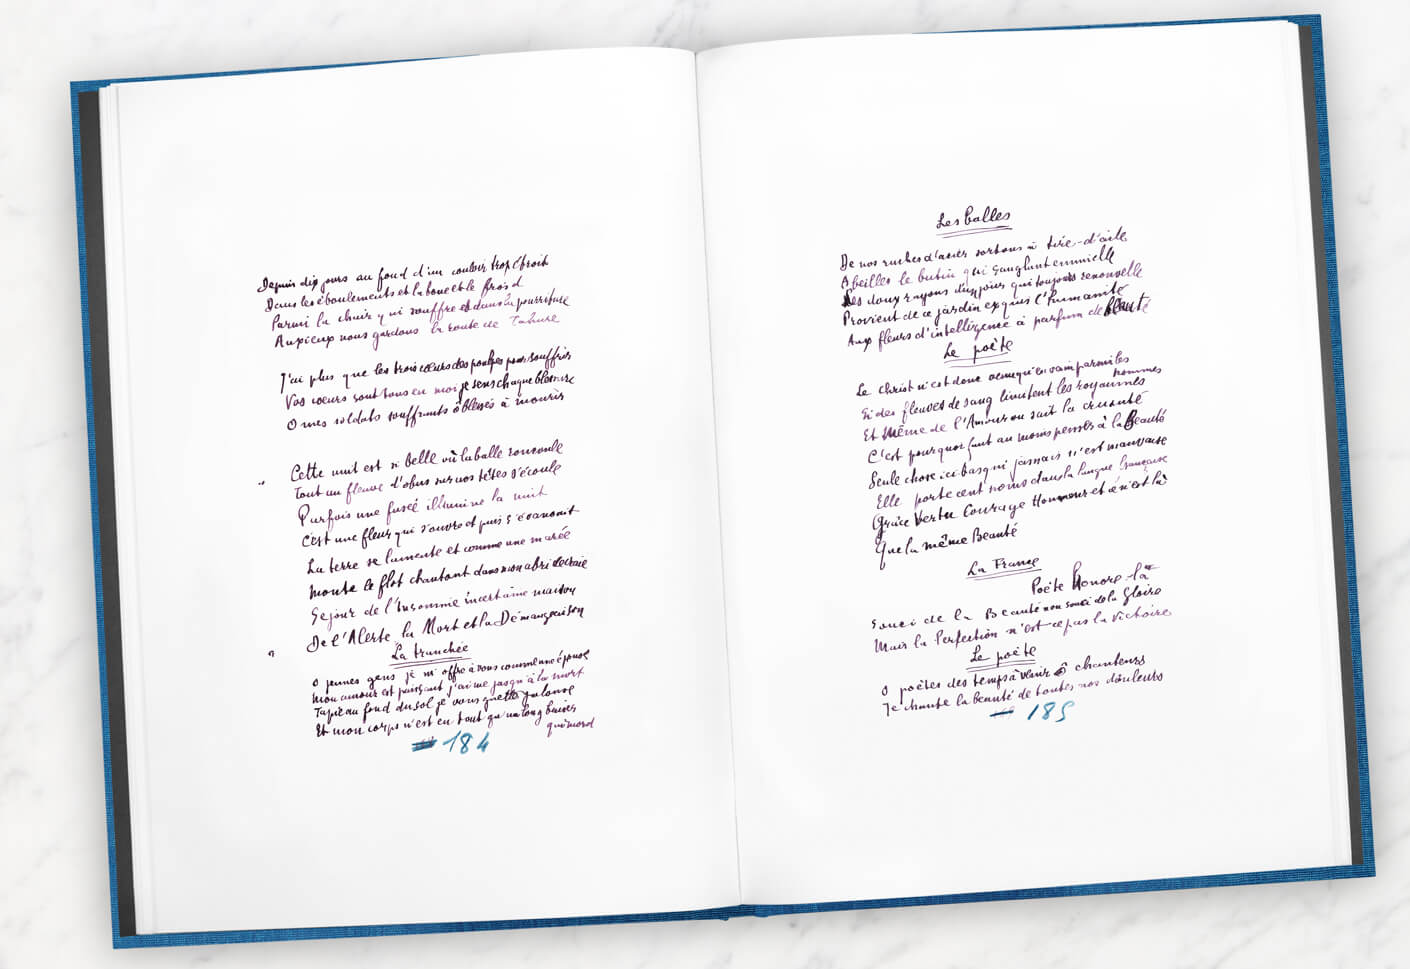 Depuis dix jours au fond d'un couloir trop étroit
Dans les éboulements et la boue et le froid
Parmi la chair qui souffre et dans la pourriture
Anxieux nous gardons la route de Tahure
J'ai plus que les trois cœurs des poulpes pour souffrir
Vos cœurs sont tous en moi je sens chaque blessure
O mes soldats souffrants ô blessés à mourir
Cette nuit est si belle où la balle roucoule
Tout un fleuve d'obus sur nos têtes s'écoule
Parfois une fusée illumine la nuit
C'est une fleur qui s'ouvre et puis s'évanouit
La terre se lamente et comme une marée
Monte le flot chantant dans mon abri de craie
Séjour de l'Insomnie incertaine maison
De l'Alerte la Mort et la Démangeaison
La tranchée
O jeunes gens je m'offre à vous comme une épouse
Mon amour est puissant j'aime jusqu'à la mort
Tapie au fond du sol je vous guette jalouse
Et mon corps n'est en tout qu'un long baiser
qui mord
184
Les balles
De nos ruches d'acier sortons à tire-d'aile
Abeilles le butin qui sanglant emmielle
Les doux rayons d'un jour qui toujours renouvelle
Provient de ce jardin exquis l'humanité
Aux fleurs d'intelligence à parfum de beauté
Le poète
Le Christ n'est donc venu qu'en vain parmi les
hommes
Si des fleuves de sang limitent les royaumes
Et même de l'Amour on sait la cruauté
C'est pourquoi faut au moins penser à la Beauté
Seule chose ici-bas qui jamais n'est mauvaise
Elle porte cent noms dans la langue française
Grâce Vertu Courage Honneur et ce n'est là
Que la même Beauté
La France
Poète Honore-la
Souci de la Beauté non souci de la Gloire
Mais la Perfection n'est-ce pas la Victoire
Le poète
O poètes des temps à venir ô chanteurs
Je chante la beauté de toutes nos douleurs
185